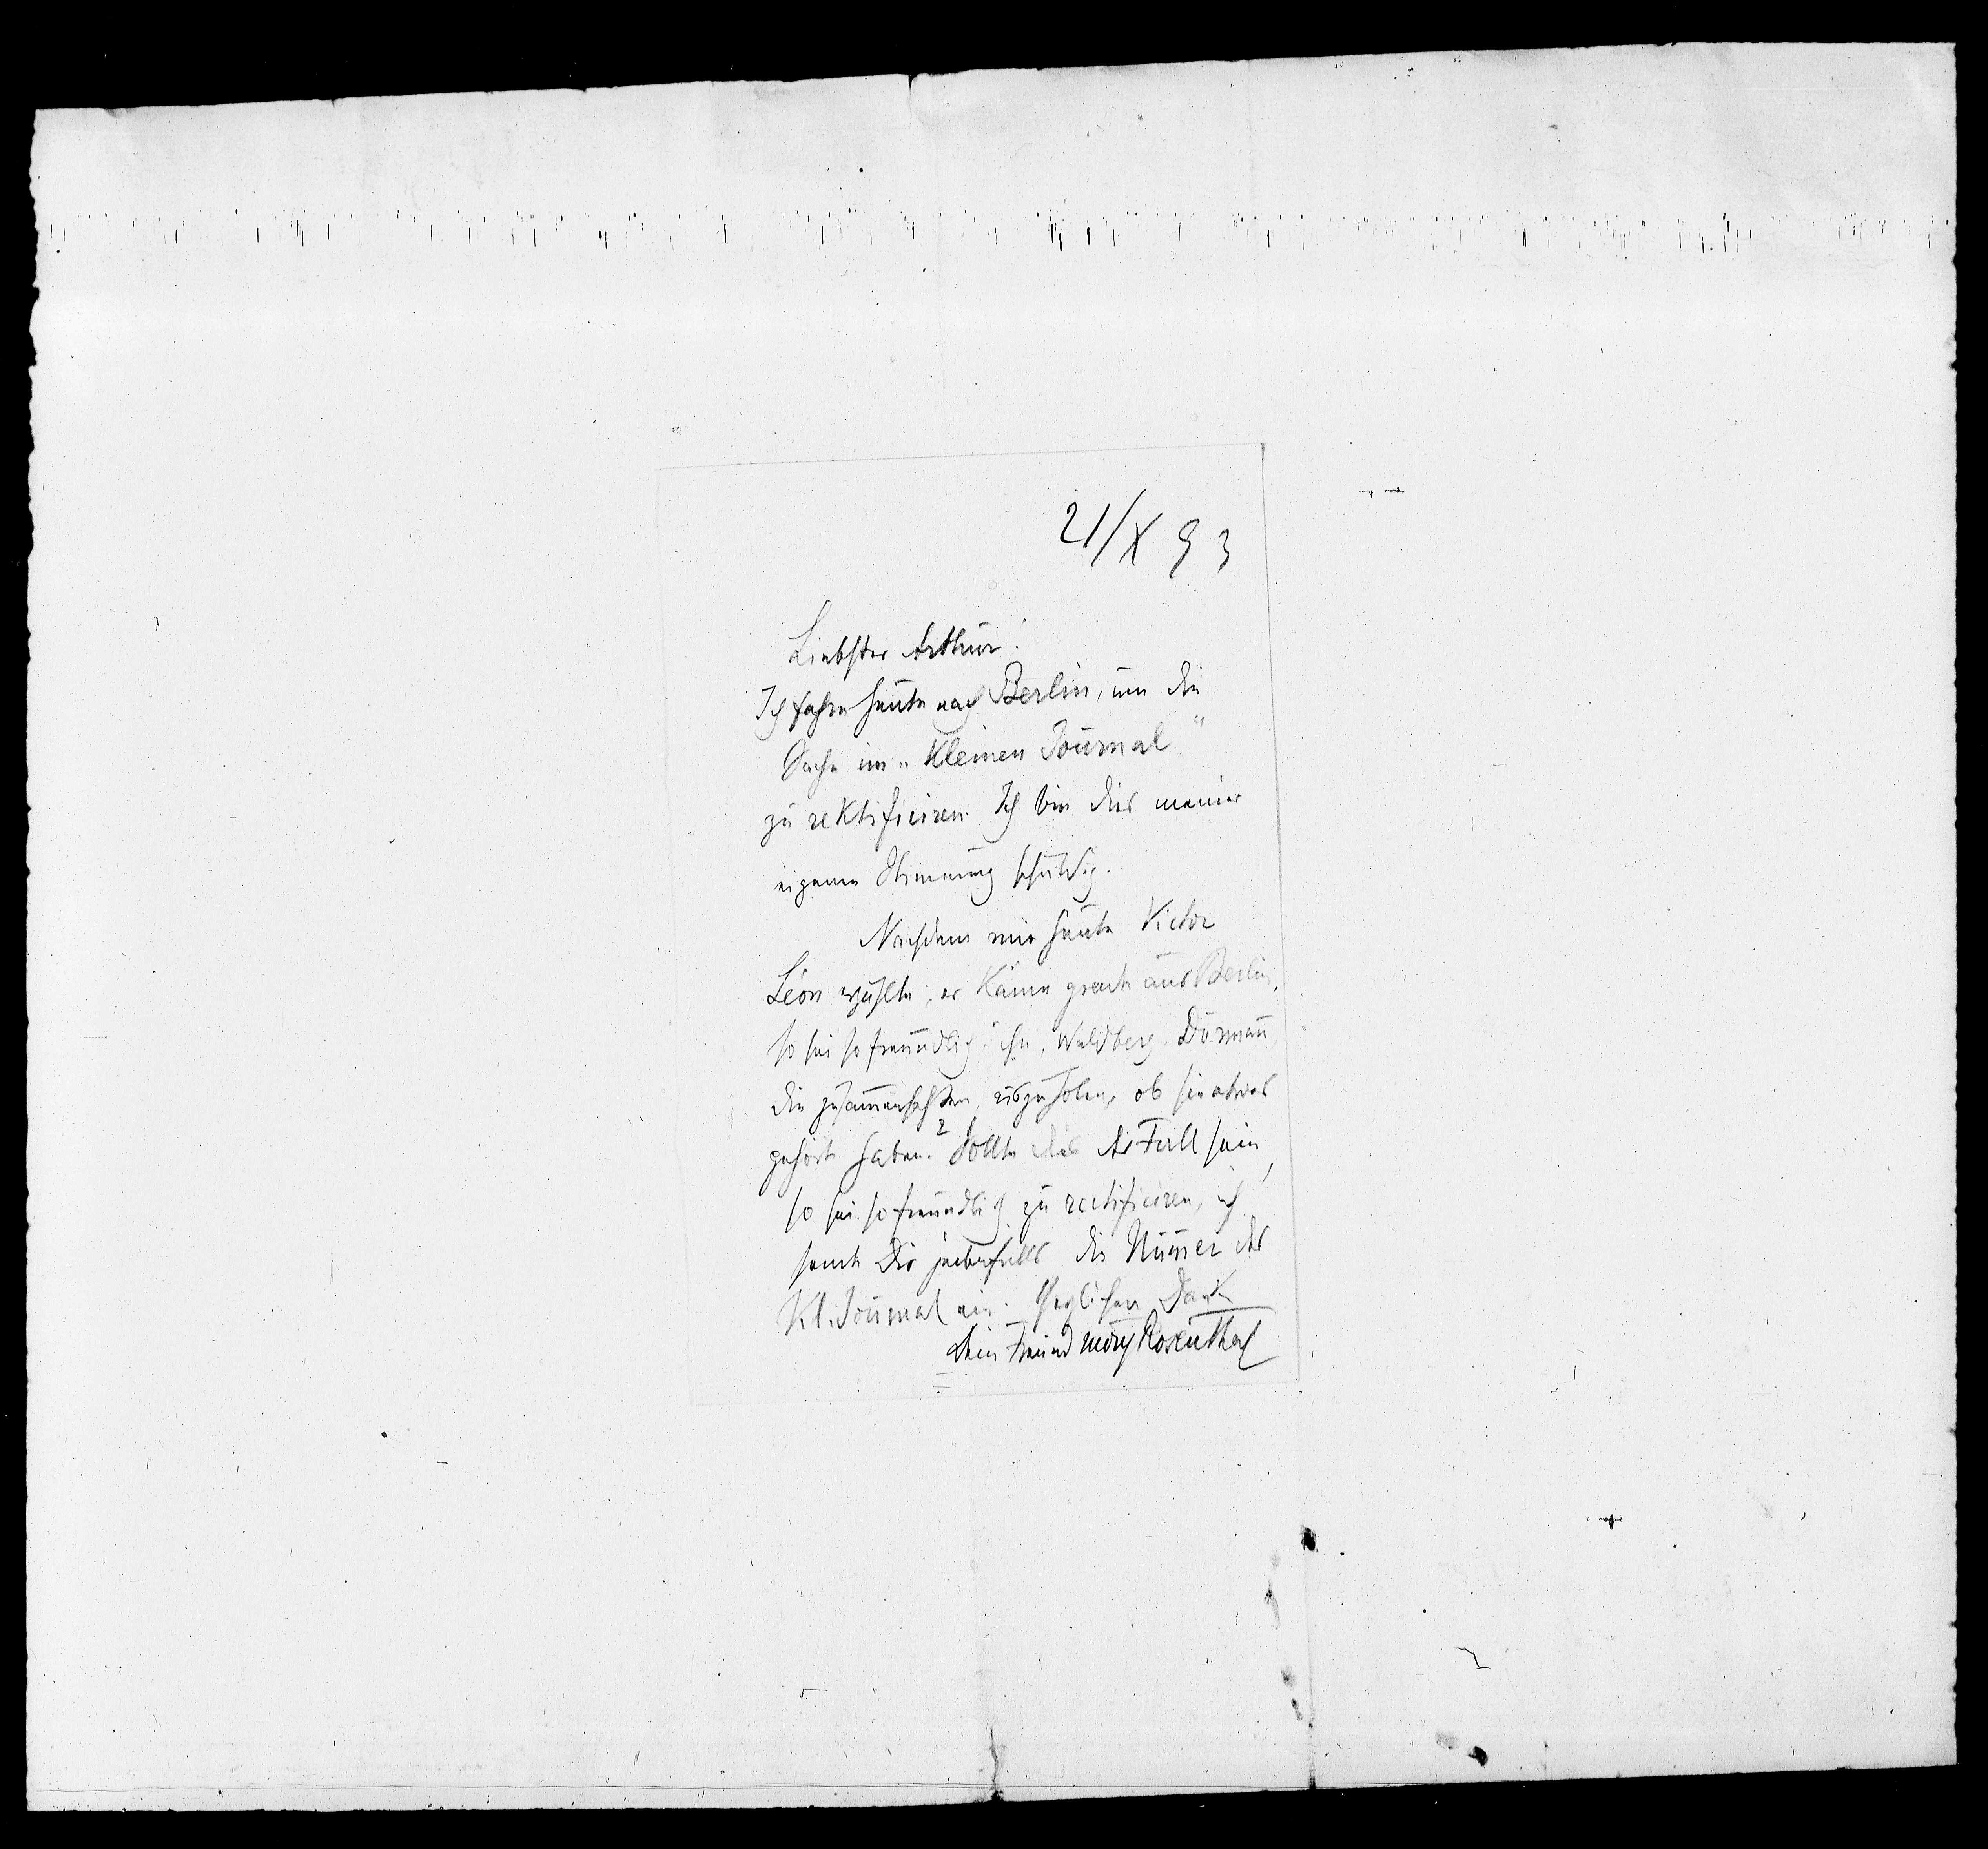 21/X 93
Liebster Arthur!
Ich fahre heute nach Berlin, um die
Sache im „Kleinen Journal“
zu rektificiren. Ich bin dies meiner
eigenen Stimmung schuldig.
Nachdem mir heute Victor
Léon erzählte, er käme grade aus Berlin,
so sei so freundlich ihn, Waldberg, Dörmann,
die zusammen auszuholen, ob sie etwas
gehört haben? Sollte dies der Fall sein,
so sei so freundlich zu rectificiren, ich
sende Dir jedenfalls die Num̄er des
Kl. Journal ein. Herzlichen Dank
Dein Freund Moriz Rosenthal